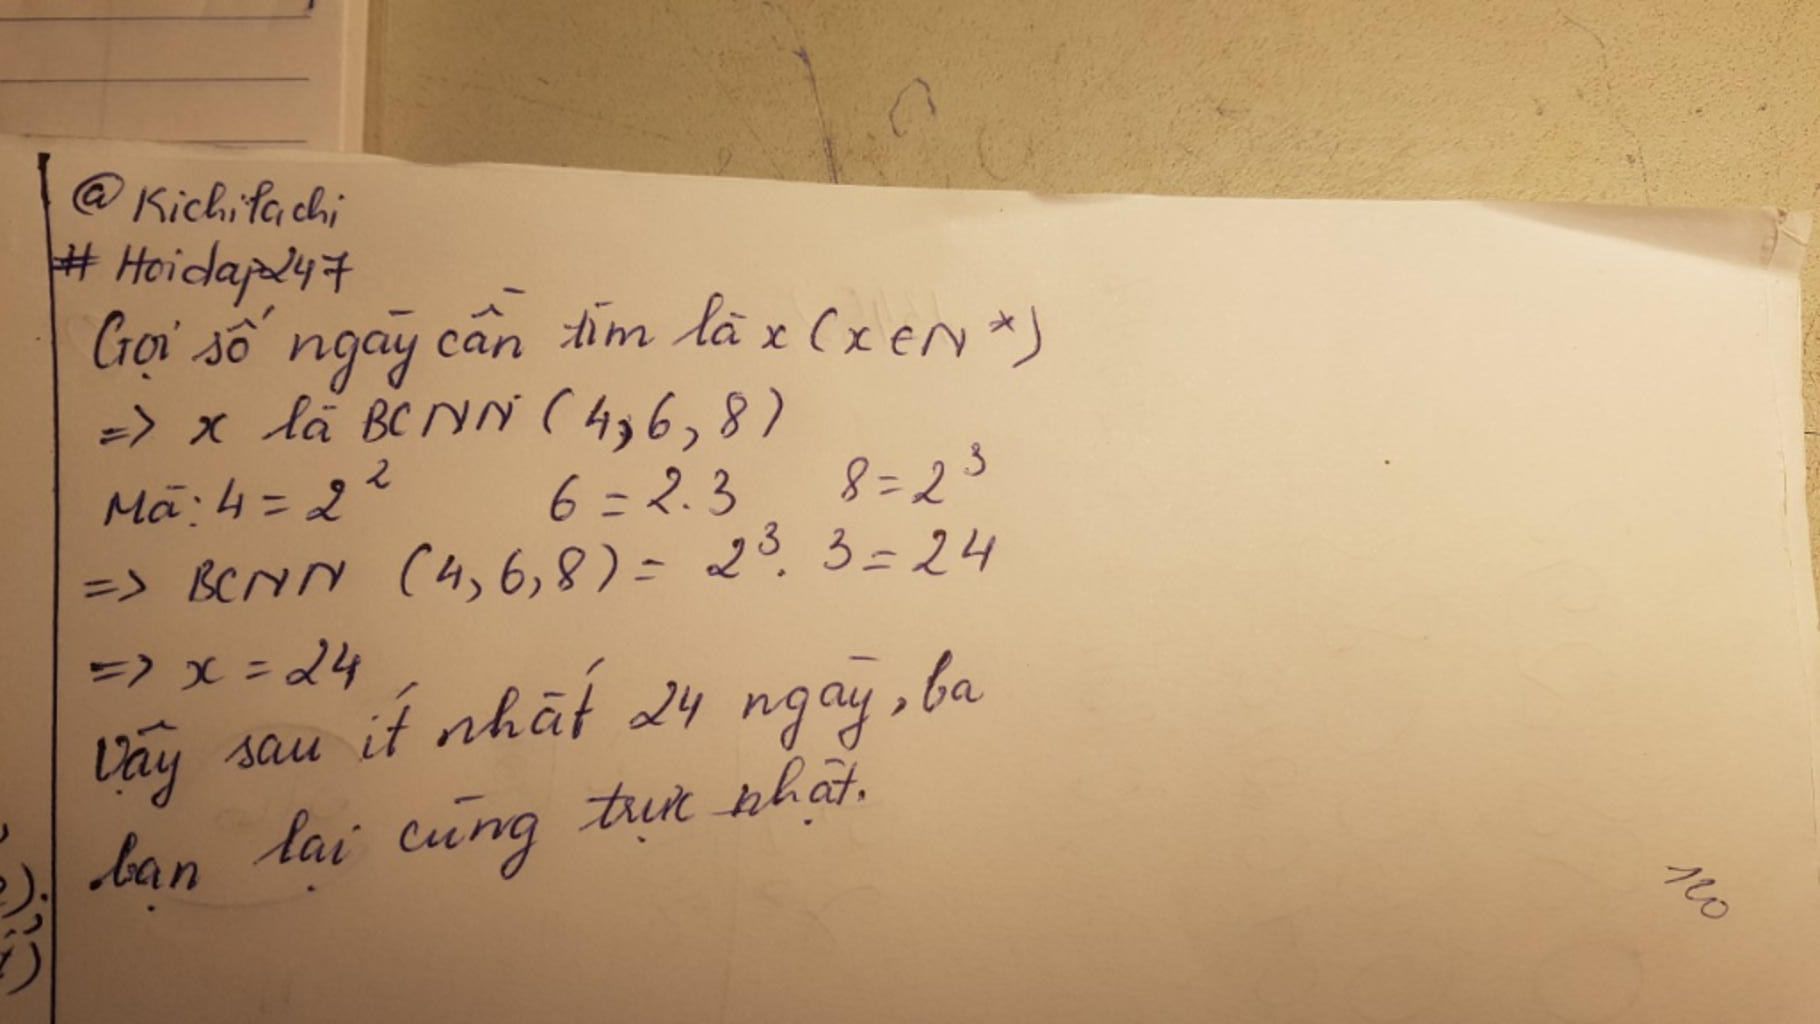 @ Kichitachi
# Hoidap247
Gọi số ngày cần tìm là x (x ∈ N*)
=> x là BCNN (4, 6, 8)
Mà: 4 = 2² 6 = 2.3 8 = 2³
=> BCNN (4, 6, 8) = 2³. 3 = 24
=> x = 24
Vậy sau ít nhất 24 ngày, ba
bạn lại cùng trực nhật.
120